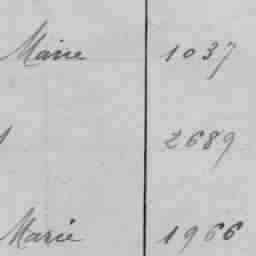 Marie 1037
2689
Marie 1966